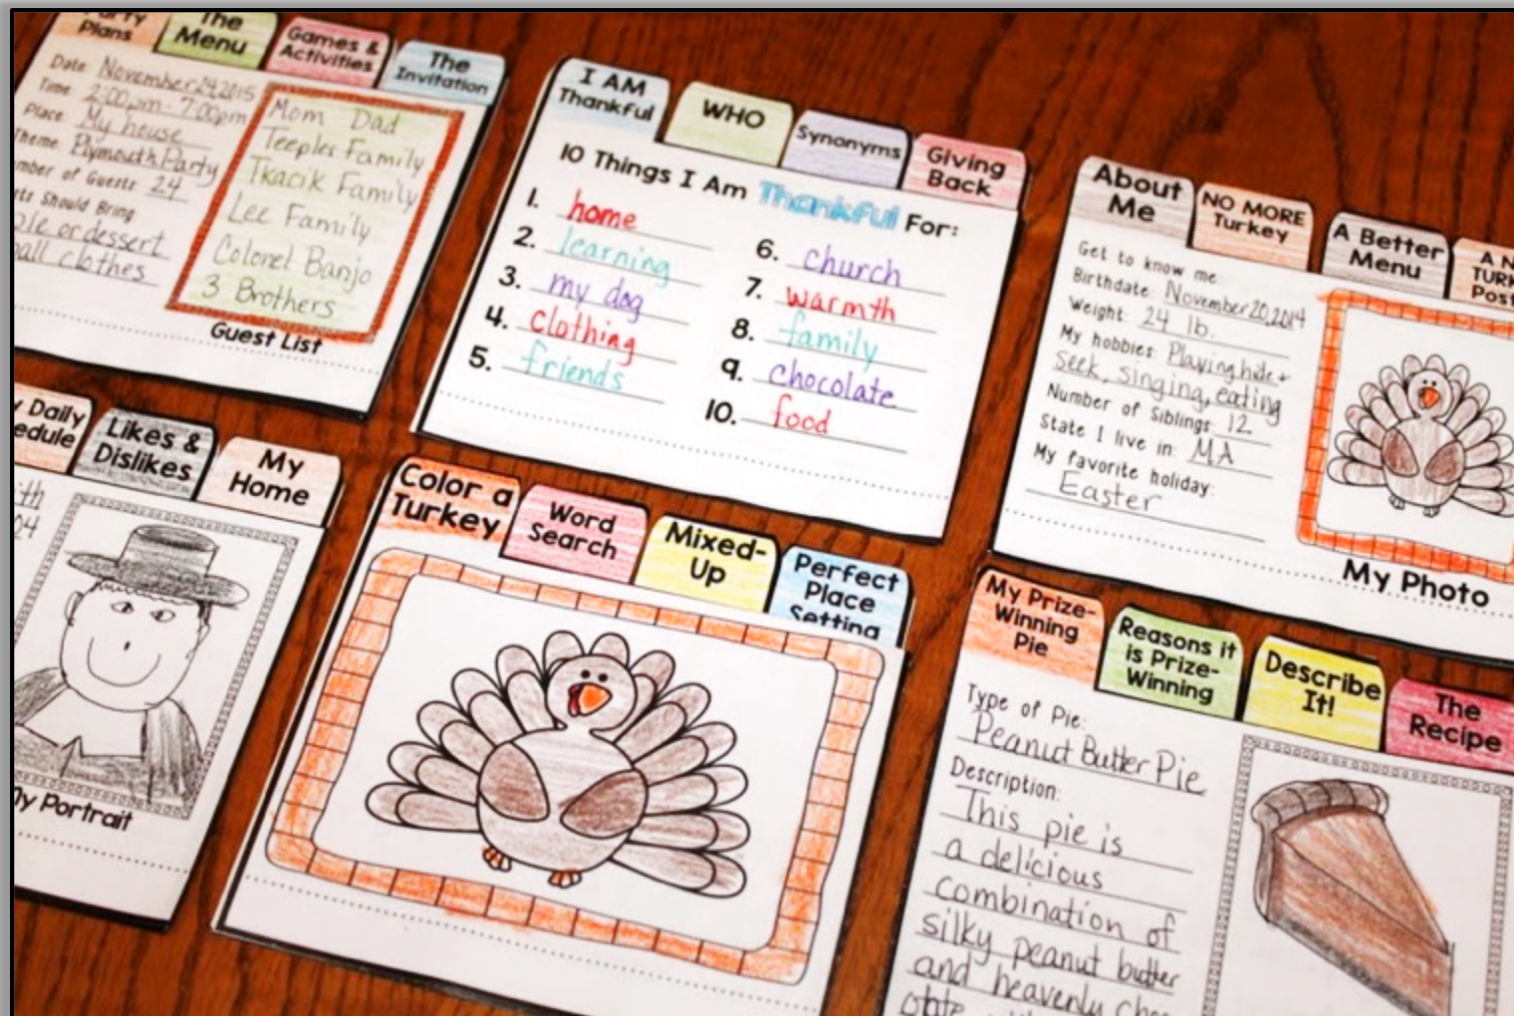 Party
Plans
The
Menu
Games &
Activities
The
Invitation
Date: November 24, 2015
Time: 2:00pm - 7:00pm
Place: My house
Theme: Plymouth Party
mber of Guests: 24
Should Bring
or dessert
clothes
Mom Dad
Teeples Family
Tkacik Family
Lee Family
Colonel Banjo
3 Brothers
Guest List
I AM
Thankful
WHO
Synonyms
Giving
Back
10 Things I Am Thankful For:
1. home
2. learning
3. my dog
4. clothing
5. friends
6. church
7. warmth
8. family
9. chocolate
10. food
About
Me
NO MORE
Turkey
A Better
Menu
A N
TURK
Post
Get to know me:
Birthdate: November 20, 2014
Weight: 24 lb.
My hobbies: Playing hide +
seek, singing, eating
Number of Siblings: 12
State I live in: MA
My favorite holiday:
Easter
My Photo
y Daily
edule
Likes &
Dislikes
My
Home
ith
04
My Portrait
Color a
Turkey
Word
Search
Mixed-
Up
Perfect
Place
Setting
My Prize-
Winning
Pie
Reasons it
is Prize-
Winning
Describe
It!
The
Recipe
Type of Pie:
Peanut Butter Pie
Description:
This pie is
a delicious
combination of
silky peanut butter
and heavenly choc